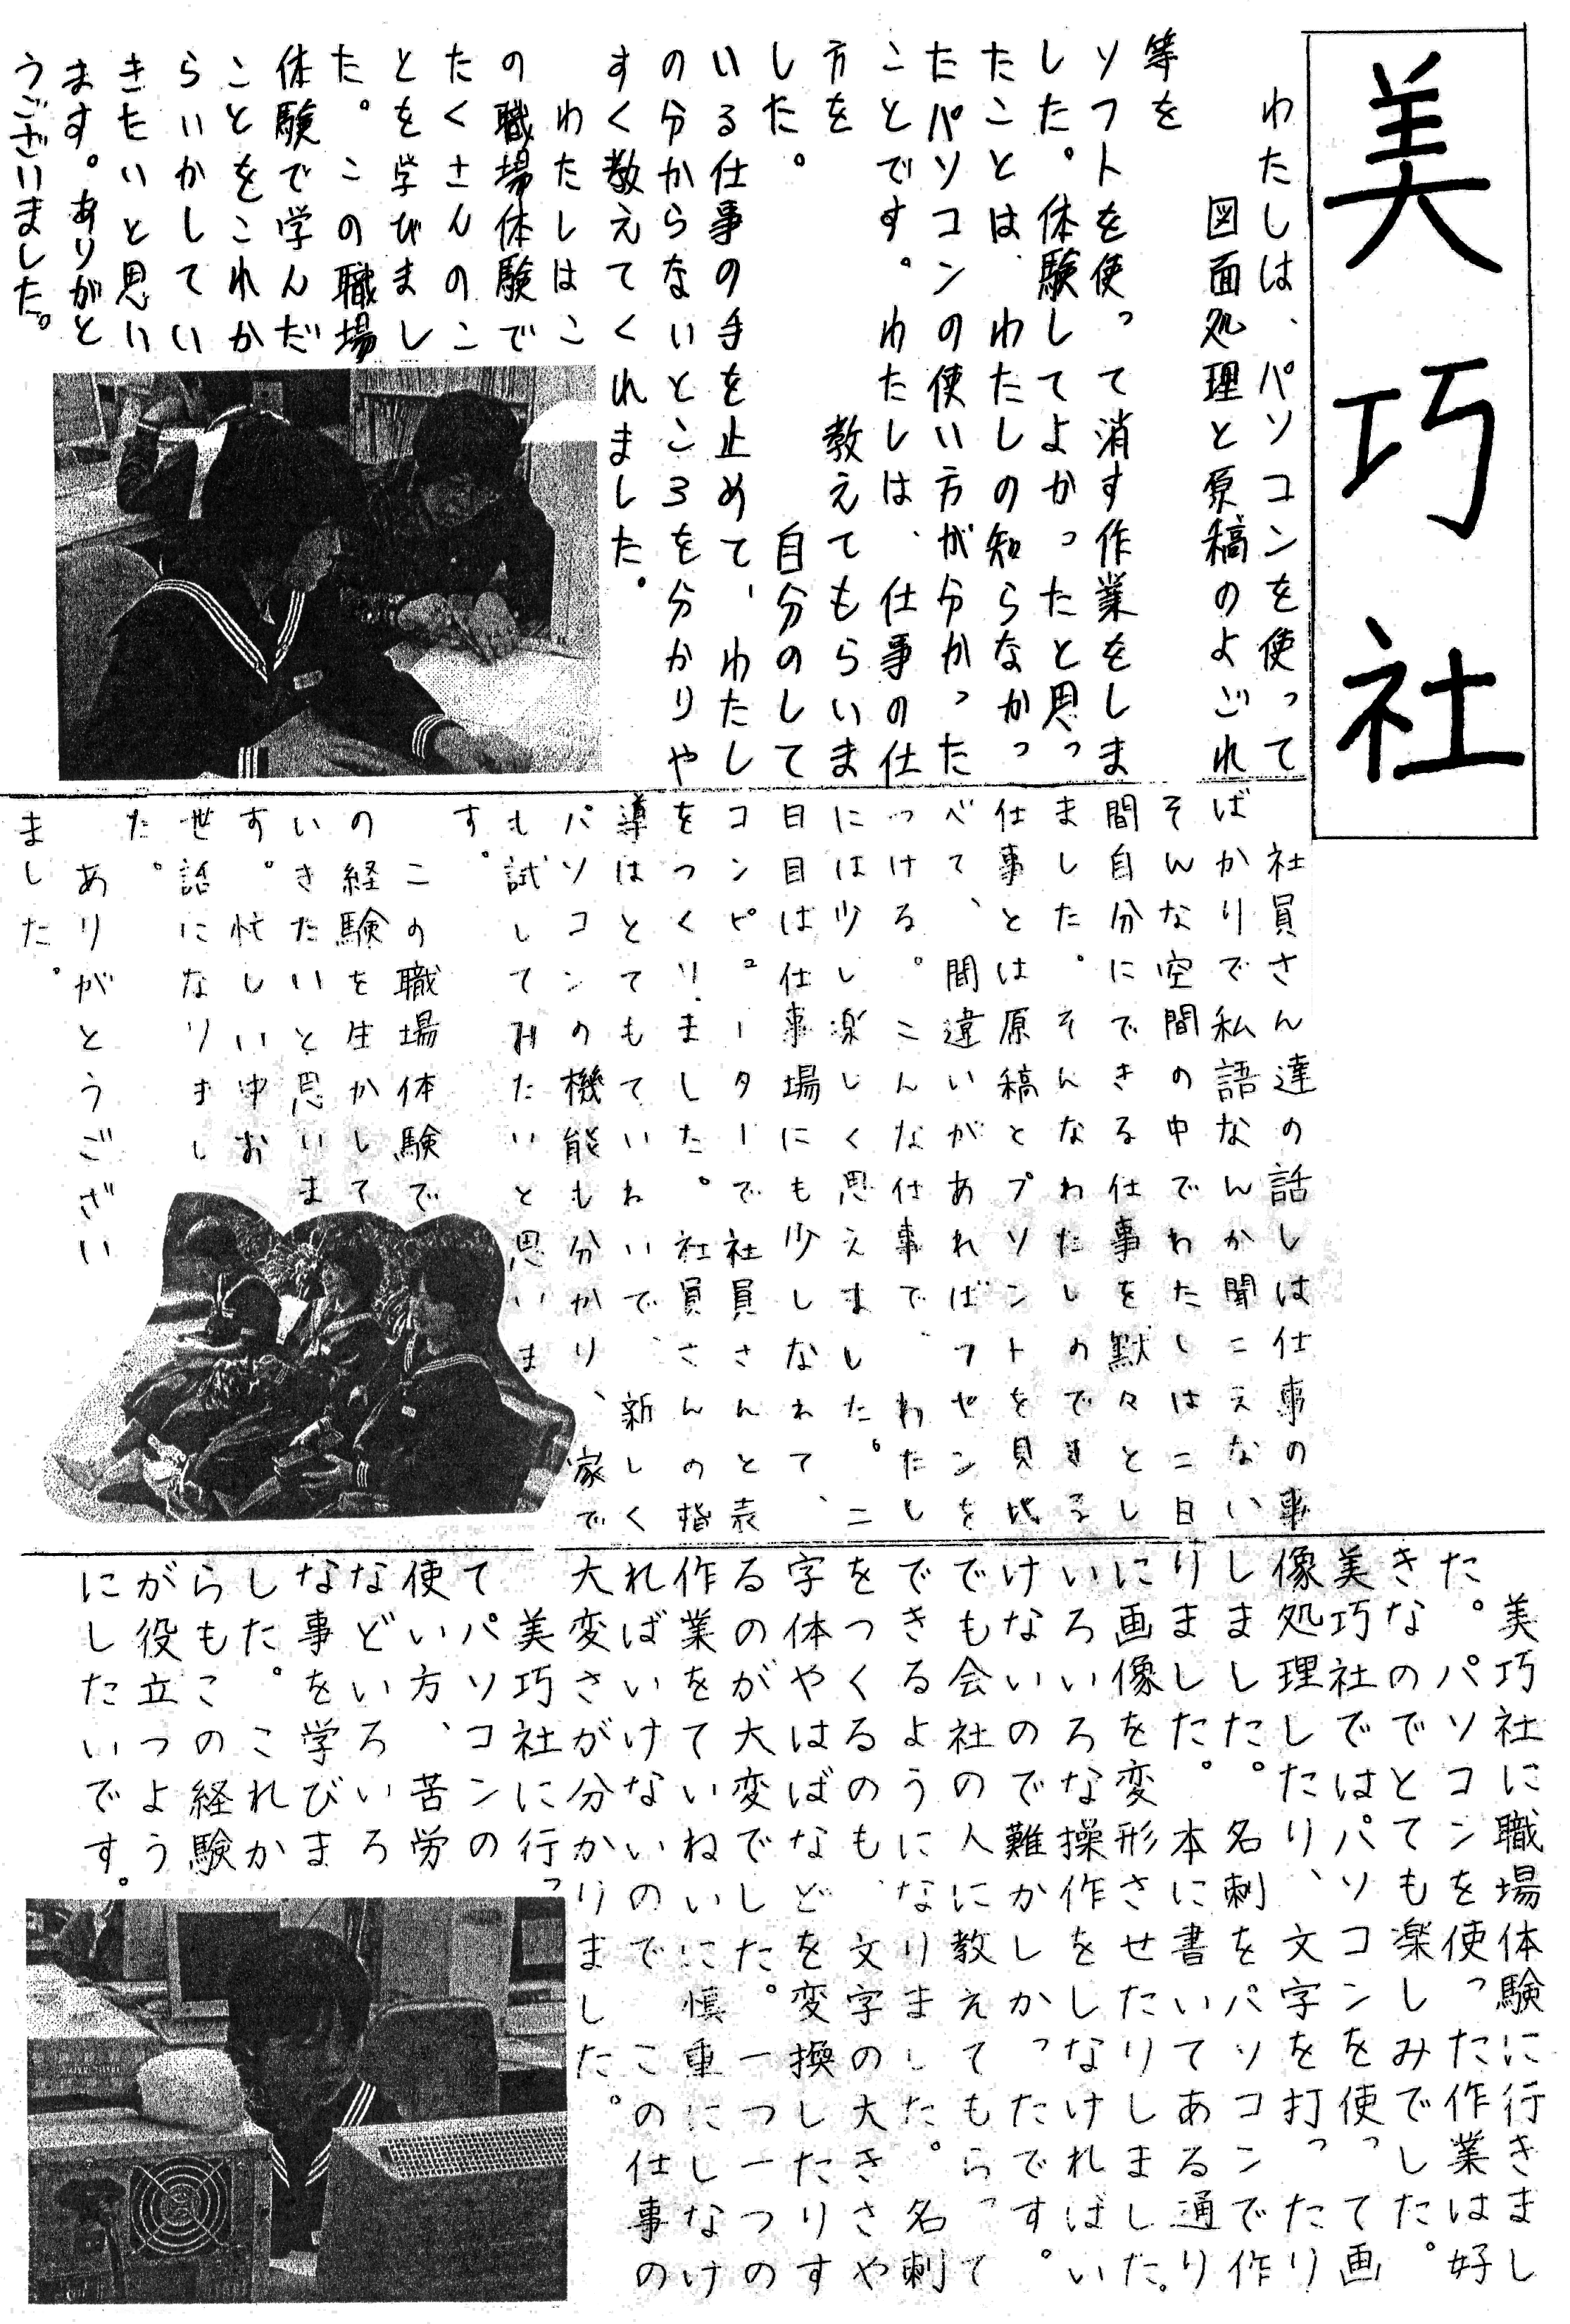 美巧社
わたしは、パソコンを使って
図面処理と原稿のよごれ
等を
ソフトを使って消す作業をしま
した。体験してよかったと思っ
たことは、わたしの知らなかっ
たパソコンの使い方が分かった
ことです。わたしは、仕事の仕
方を
教えてもらいま
した。
自分のして
いる仕事の手を止めて、わたし
の分からないところを分かりや
すく教えてくれました。
わたしはこ
の職場体験で
たくさんのこ
とを学びまし
た。この職場
体験で学んだ
ことをこれか
らいかしてい
きたいと思い
ます。ありがと
うございました。
社員さん達の話しは仕事の事
ばかりで私語なんか聞こえない
そんな空間の中でわたしは二日
間自分にできる仕事を黙々とし
ました。そんなわたしのできる
仕事とは原稿とプソントを見比
べて、間違いがあればフセンを
つける。こんな仕事で、わたし
には少し楽しく思えました。二
日目は仕事場にも少しなれて、
コンピューターで社員さんと表
をつくりました。社員さんの指
導はとてもていねいで、新しく
パソコンの機能も分かり、家で
も試してみたいと思いま
す。
この職場体験で
の経験を生かして
いきたいと思いま
す。忙しい中お
世話になりまし
た。
ありがとうござい
ました。
美巧社に職場体験に行きまし
た。パソコンを使った作業は好
きなのでとても楽しみでした。
美巧社ではパソコンを使って画
像処理したり、文字を打ったり
しました。名刺をパソコンで作
りました。本に書いてある通り
に画像を変形させたりしました。
いろいろな操作をしなければい
けないので難かしかったです。
でも会社の人に教えてもらって
できるようになりました。名刺
をつくるのも、文字の大きさや
字体やはばなどを変換したりす
るのが大変でした。一つ一つの
作業をていねいに慎重にしなけ
ればいけないのでこの仕事の
大変さが分かりました。
美巧社に行っ
てパソコンの
使い方、苦労
などいろいろ
な事を学びま
した。これか
らもこの経験
が役立つよう
にしたいです。